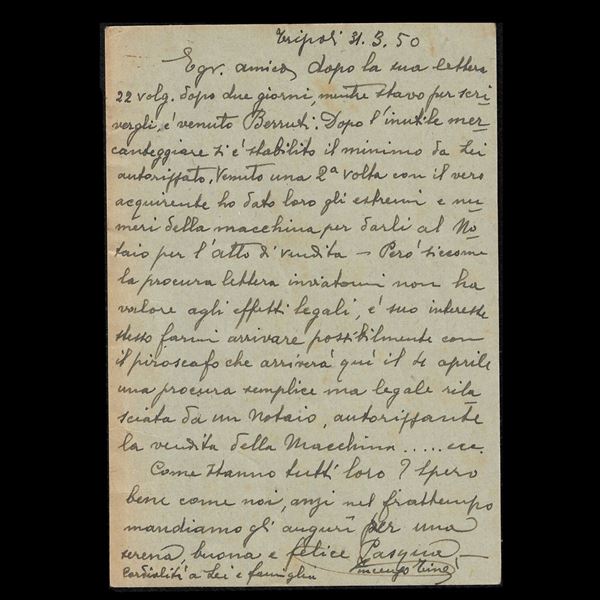 Tripoli 31.3.50
Egr. amico, dopo la sua lettera
22 volg. dopo due giorni, mentre stavo per scri
vergli, è venuto Berruti. Dopo l'inutile mer=
canteggiare si è stabilito il minimo da Lei
autorizzato. Venuto una 2ª volta con il vero
acquirente ho dato loro gli estremi e nu=
meri della macchina per darli al No=
taio per l'atto di vendita — Però siccome
la procura lettera inviatomi non ha
valore agli effetti legali, è suo interesse
stesso farmi arrivare possibilmente con
il piroscafo che arriverà quì il 4 aprile
una procura semplice ma legale rila
sciata da un Notaio, autorizzante
la vendita della Macchina ..... ecc.
Come stanno tutti loro? Spero
bene come noi, anzi nel frattempo
mandiamo gli auguri per una
serena, buona e felice Pasqua —
Cordialità a Lei e famiglia
Vincenzo